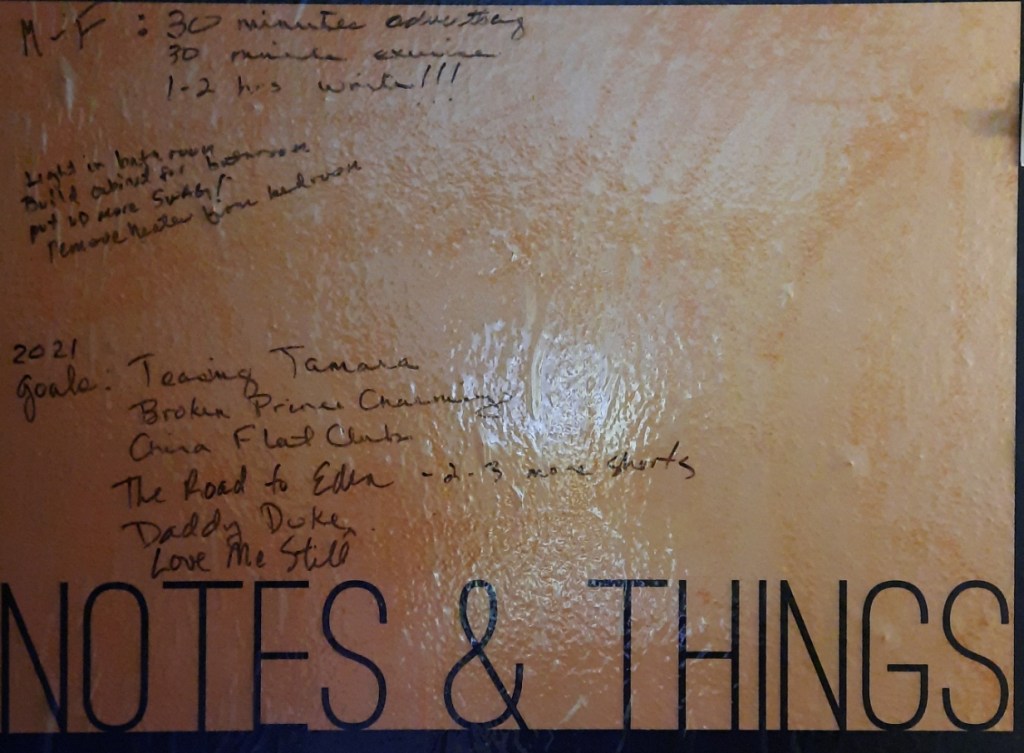 M-F : 30 minutes advertising
30 minute exercise
1-2 hrs write!!!
Light in bathroom
Build cabinet for bathroom
put up more
remove heater from bedroom
2021
Goals: Teasing Tamara
Broken Prince Charming
China Flat Club
The Road to Eden - 2-3 more shorts
Daddy Duke
Love Me Still
NOTES & THINGS